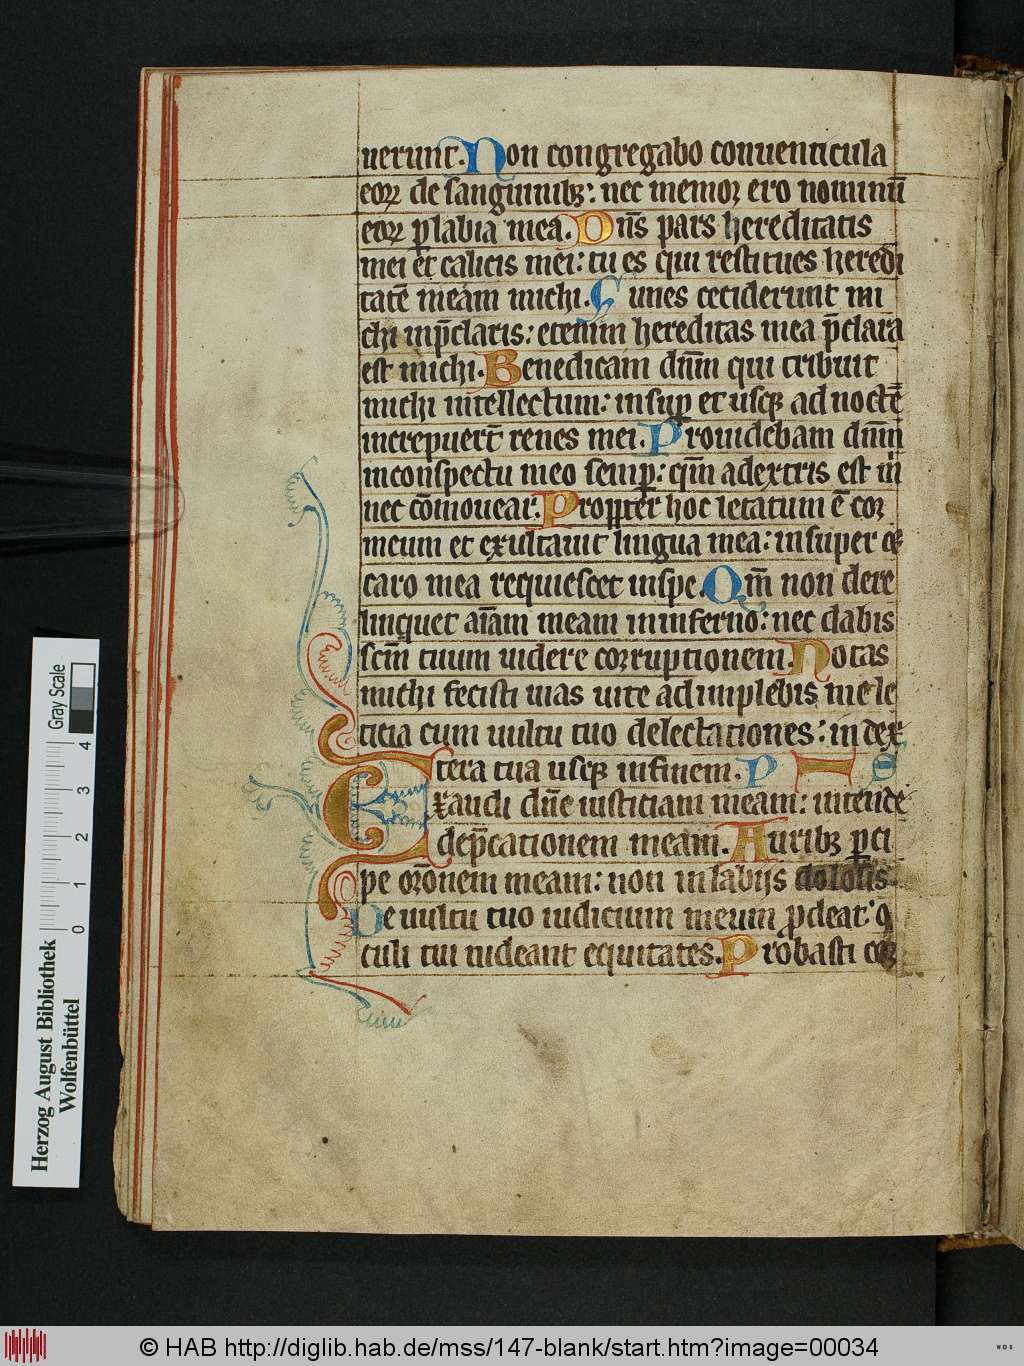 uerunt. Non congregabo conuenticula
eoꝝ de sanguinibꝫ: nec memoꝛ ero nominū
eoꝝ ꝑ labia mea. Dn̄s pars hereditatis
mei et calicis mei: tu es qui restitues heredi
tatē meam michi. Funes ceciderunt mi
chi inp̄claris: etenim hereditas mea p̄clara
est michi. Benedicam dn̄m qui tribuit
michi intellectum: insuꝑ et usqꝫ ad noctē
increpuert̄ renes mei. Prouidebam dn̄m
inconspectu meo semꝑ: qm̄ adextris est m̄
nec cōmouear. Propter hoc letatum ē coꝛ
meum et exultauit lingua mea: insuper et
caro mea requiescet inspe. Qm̄ non dere
linquet aīam meam ininferno: nec dabis
scm̄ tuum uidere coꝛruptionem. Notas
michi fecisti uias uite adimplebis me le
ticia cum uultu tuo delectationes: in dex
tera tua usqꝫ infinem. P I O
Exaudi dn̄e iusticiam meam: intende
dep̄cationem meam. Auribꝫ ꝑci
pe oꝛōnem meam: non inlabijs dolosis
De uultu tuo iudicium meum ꝓdeat: o
culi tui uideant equitates. Probasti coꝛ
Herzog August Bibliothek
Wolfenbüttel
Gray Scale
0 1 2 3 4
© HAB http://diglib.hab.de/mss/147-blank/start.htm?image=00034